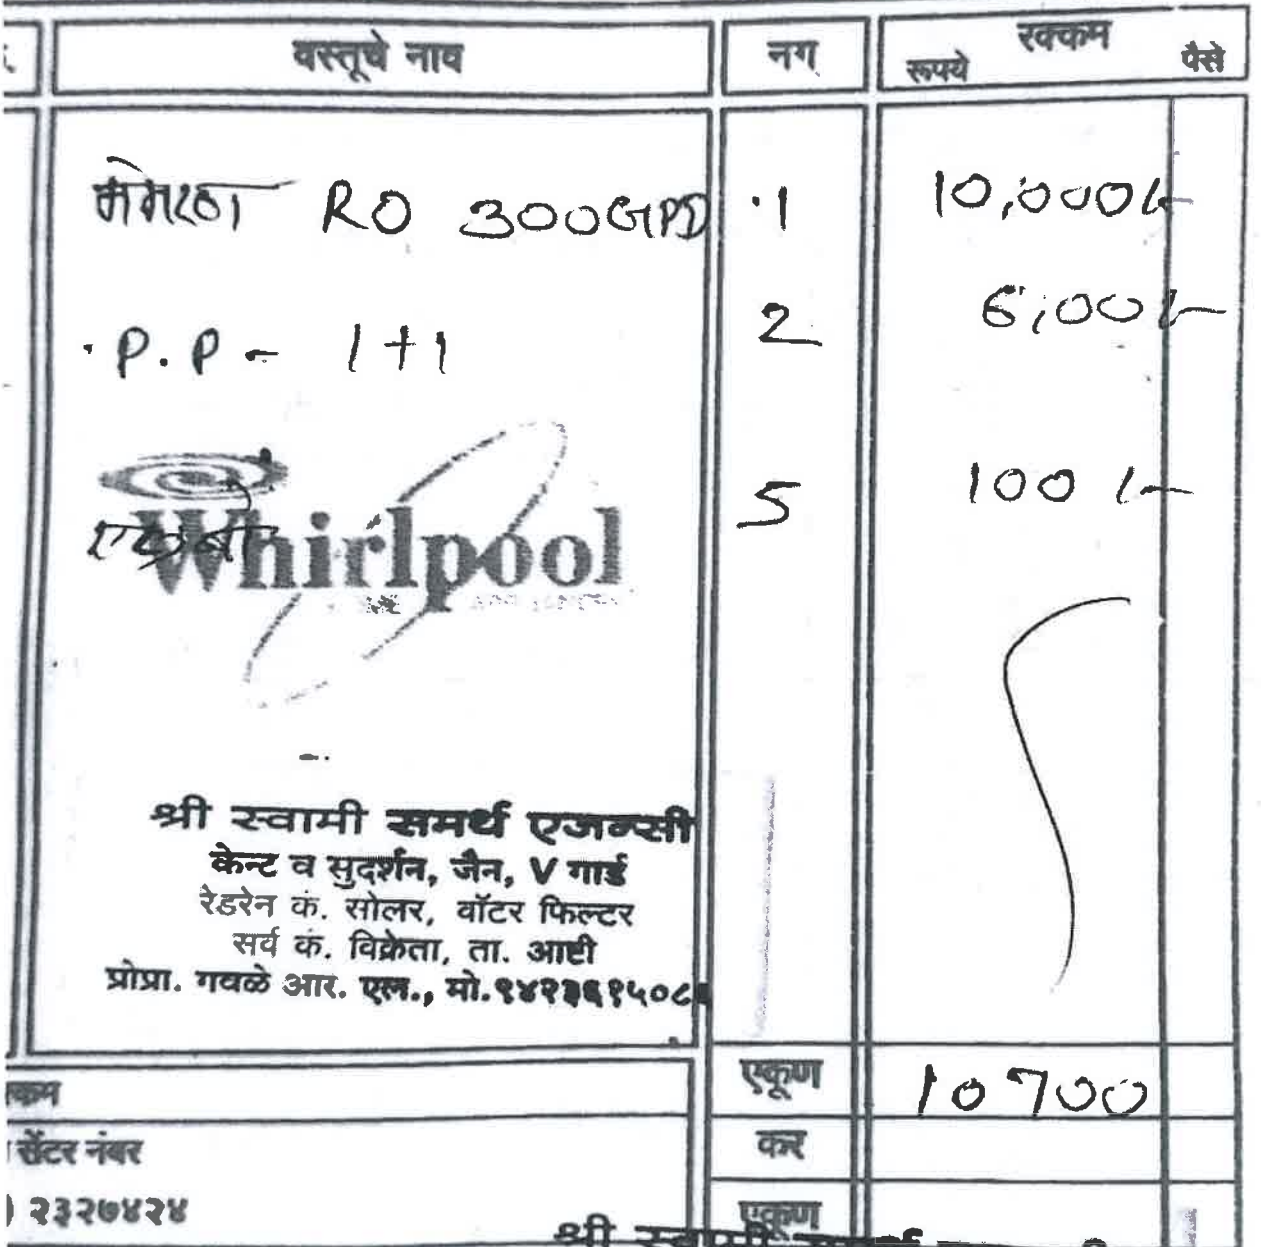 वस्तूचे नाव नग रक्कम
रूपये पैसे
RO 300GPD 1 10,000/-
P.P - 1+1 2 6,00/-
5 100/-
Whirlpool
श्री स्वामी समर्थ एजन्सी
केन्ट व सुदर्शन, जैन, V गार्ड
रेडरेन कं. सोलर, वॉटर फिल्टर
सर्व कं. विक्रेता, ता. आष्टी
प्रोप्रा. गवळे आर. एल., मो.
एकूण 10700
सेंटर नंबर कर
२३२७४२४ एकूण
श्री स्वामी समर्थ